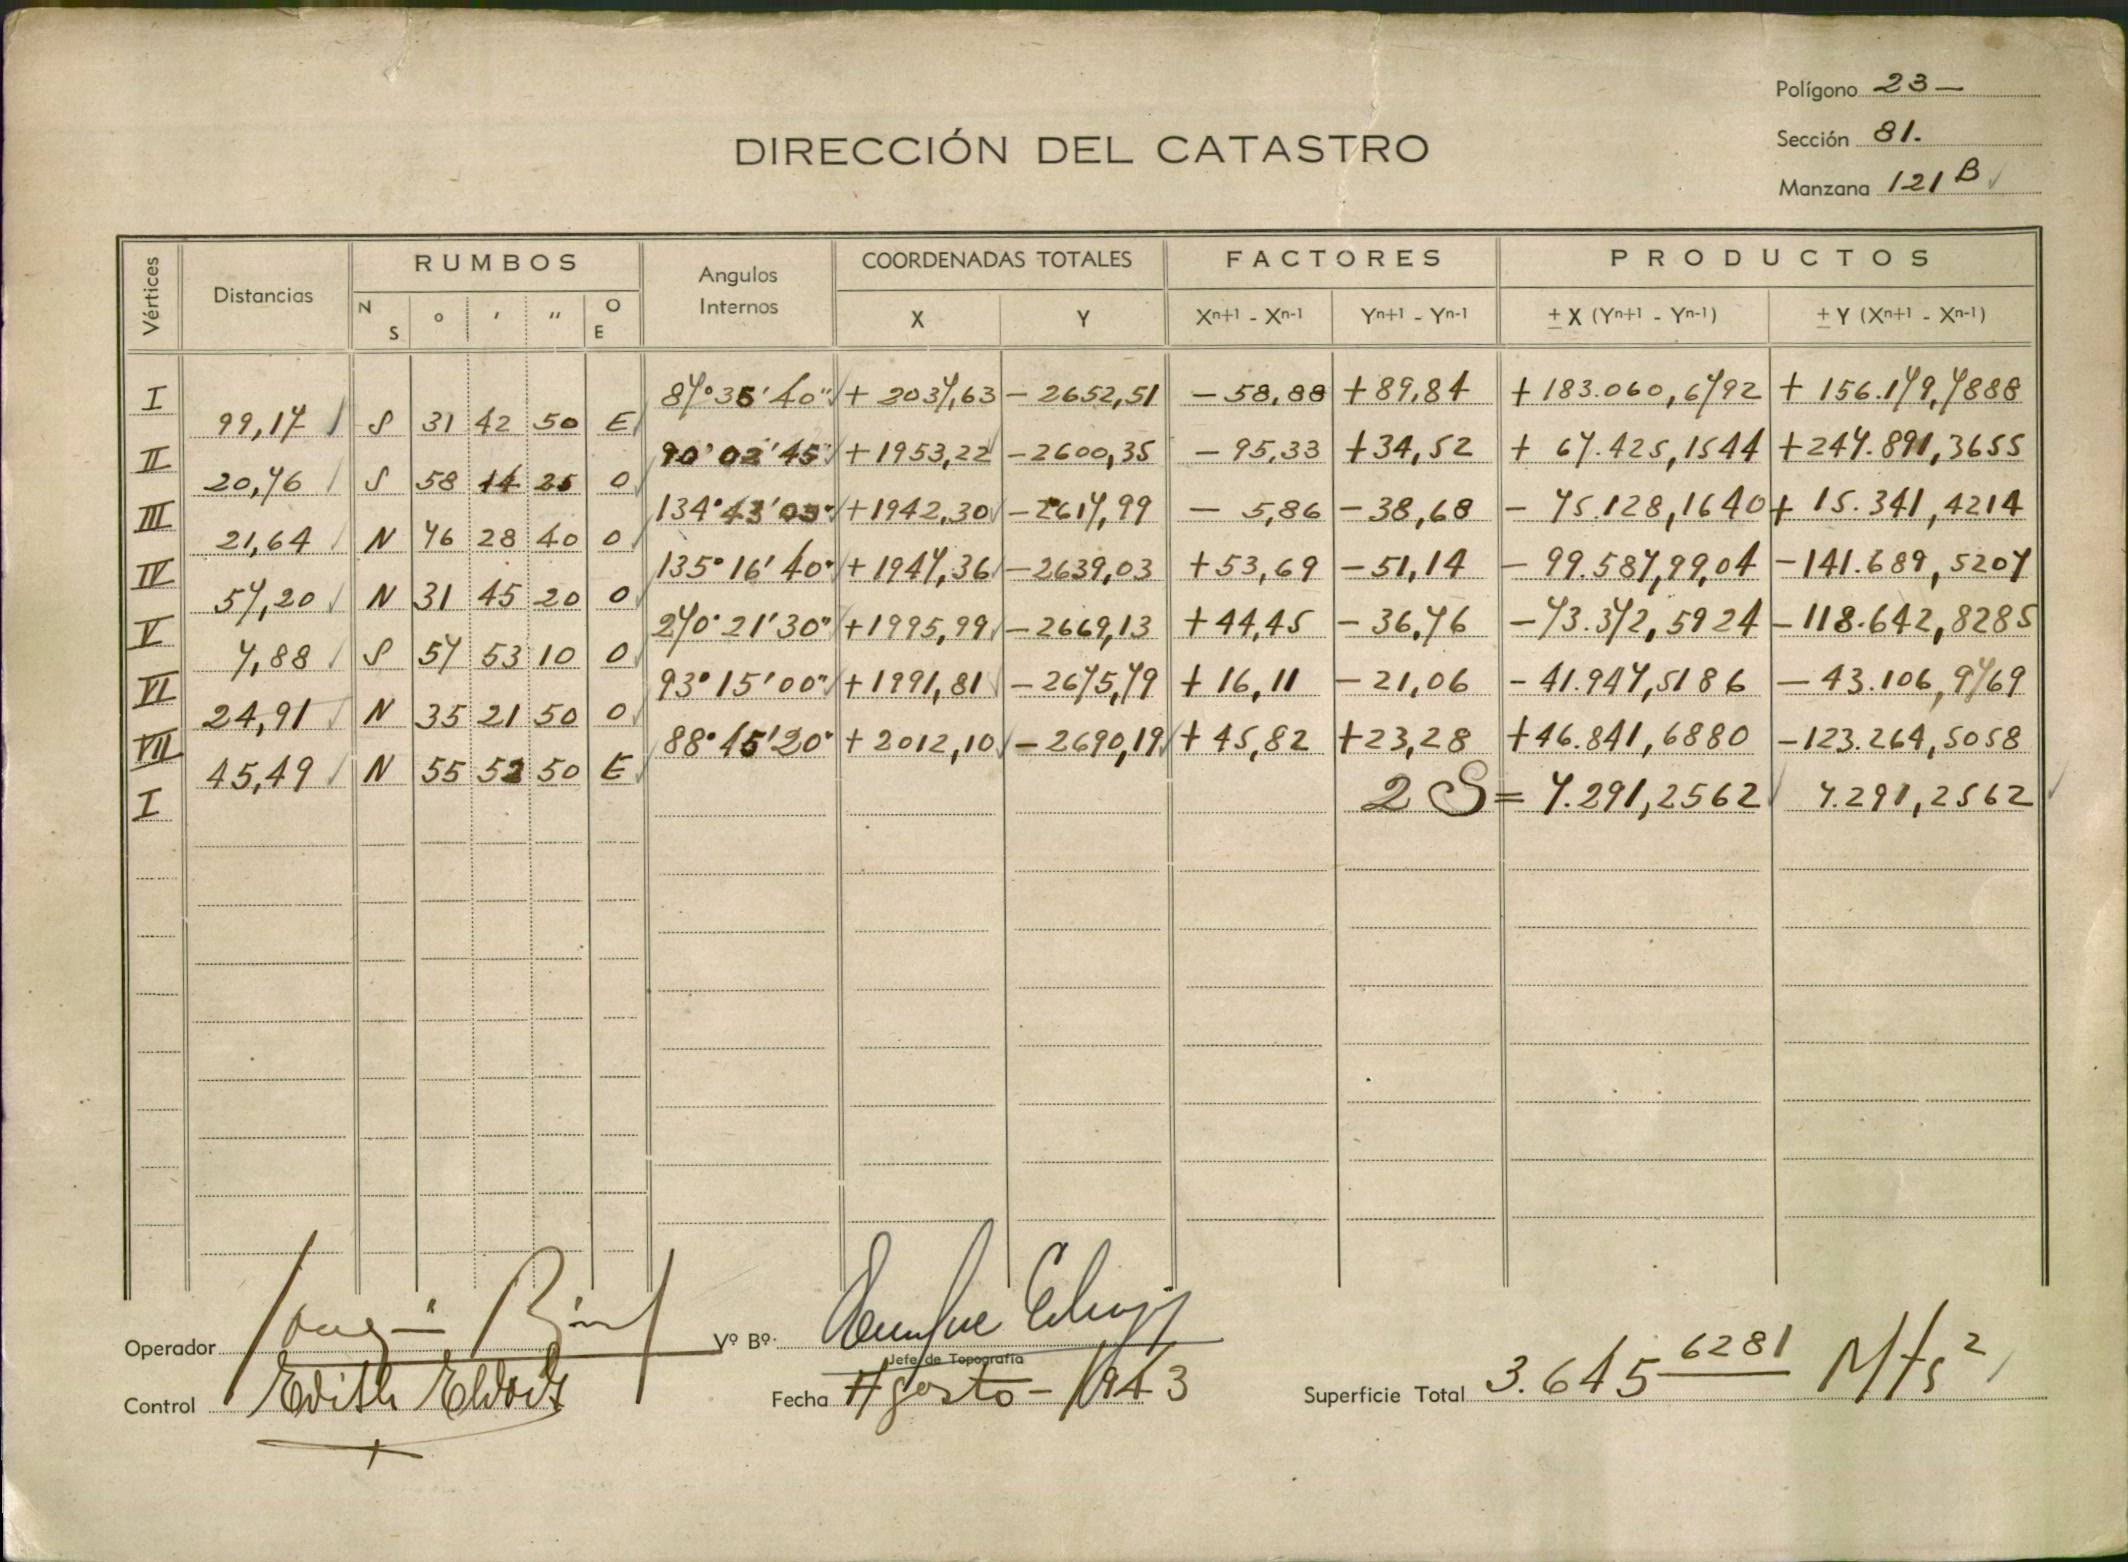 Polígono 23-
DIRECCIÓN DEL CATASTRO
Sección 81.
Manzana 121 B
Vértices Distancias RUMBOS Angulos Internos COORDENADAS TOTALES FACTORES PRODUCTOS
N S ° ′ ″ O E X Y Xn+1 - Xn-1 Yn+1 - Yn-1 ± X (Yn+1 - Yn-1) ± Y (Xn+1 - Xn-1)
I 87°35'40" + 2037,63 - 2652,51 - 58,88 + 89,84 + 183.060,6792 + 156.179,7888
99,17 S 31 42 50 E
II 90°02'45" + 1953,22 - 2600,35 - 95,33 + 34,52 + 67.425,1544 + 247.891,3655
20,76 S 58 14 25 O
III 134°43'05" + 1942,30 - 2617,99 - 5,86 - 38,68 - 75.128,1640 + 15.341,4214
21,64 N 76 28 40 O
IV 135°16'40" + 1947,36 - 2639,03 + 53,69 - 51,14 - 99.587,99,04 - 141.689,5207
57,20 N 31 45 20 O
V 270°21'30" + 1995,99 - 2669,13 + 44,45 - 36,76 - 73.372,5924 - 118.642,8285
7,88 S 57 53 10 O
VI 93°15'00" + 1991,81 - 2675,79 + 16,11 - 21,06 - 41.947,5186 - 43.106,9769
24,91 N 35 21 50 O
VII 88°45'20" + 2012,10 - 2690,19 + 45,82 + 23,28 + 46.841,6880 - 123.264,5058
45,49 N 55 52 50 E
I 2 S = 7.291,2562 7.291,2562
Operador Vº Bº
Jefe de Topografía
Control Edith Fecha Agosto - 1943 Superficie Total 3.645 6281 Mts2